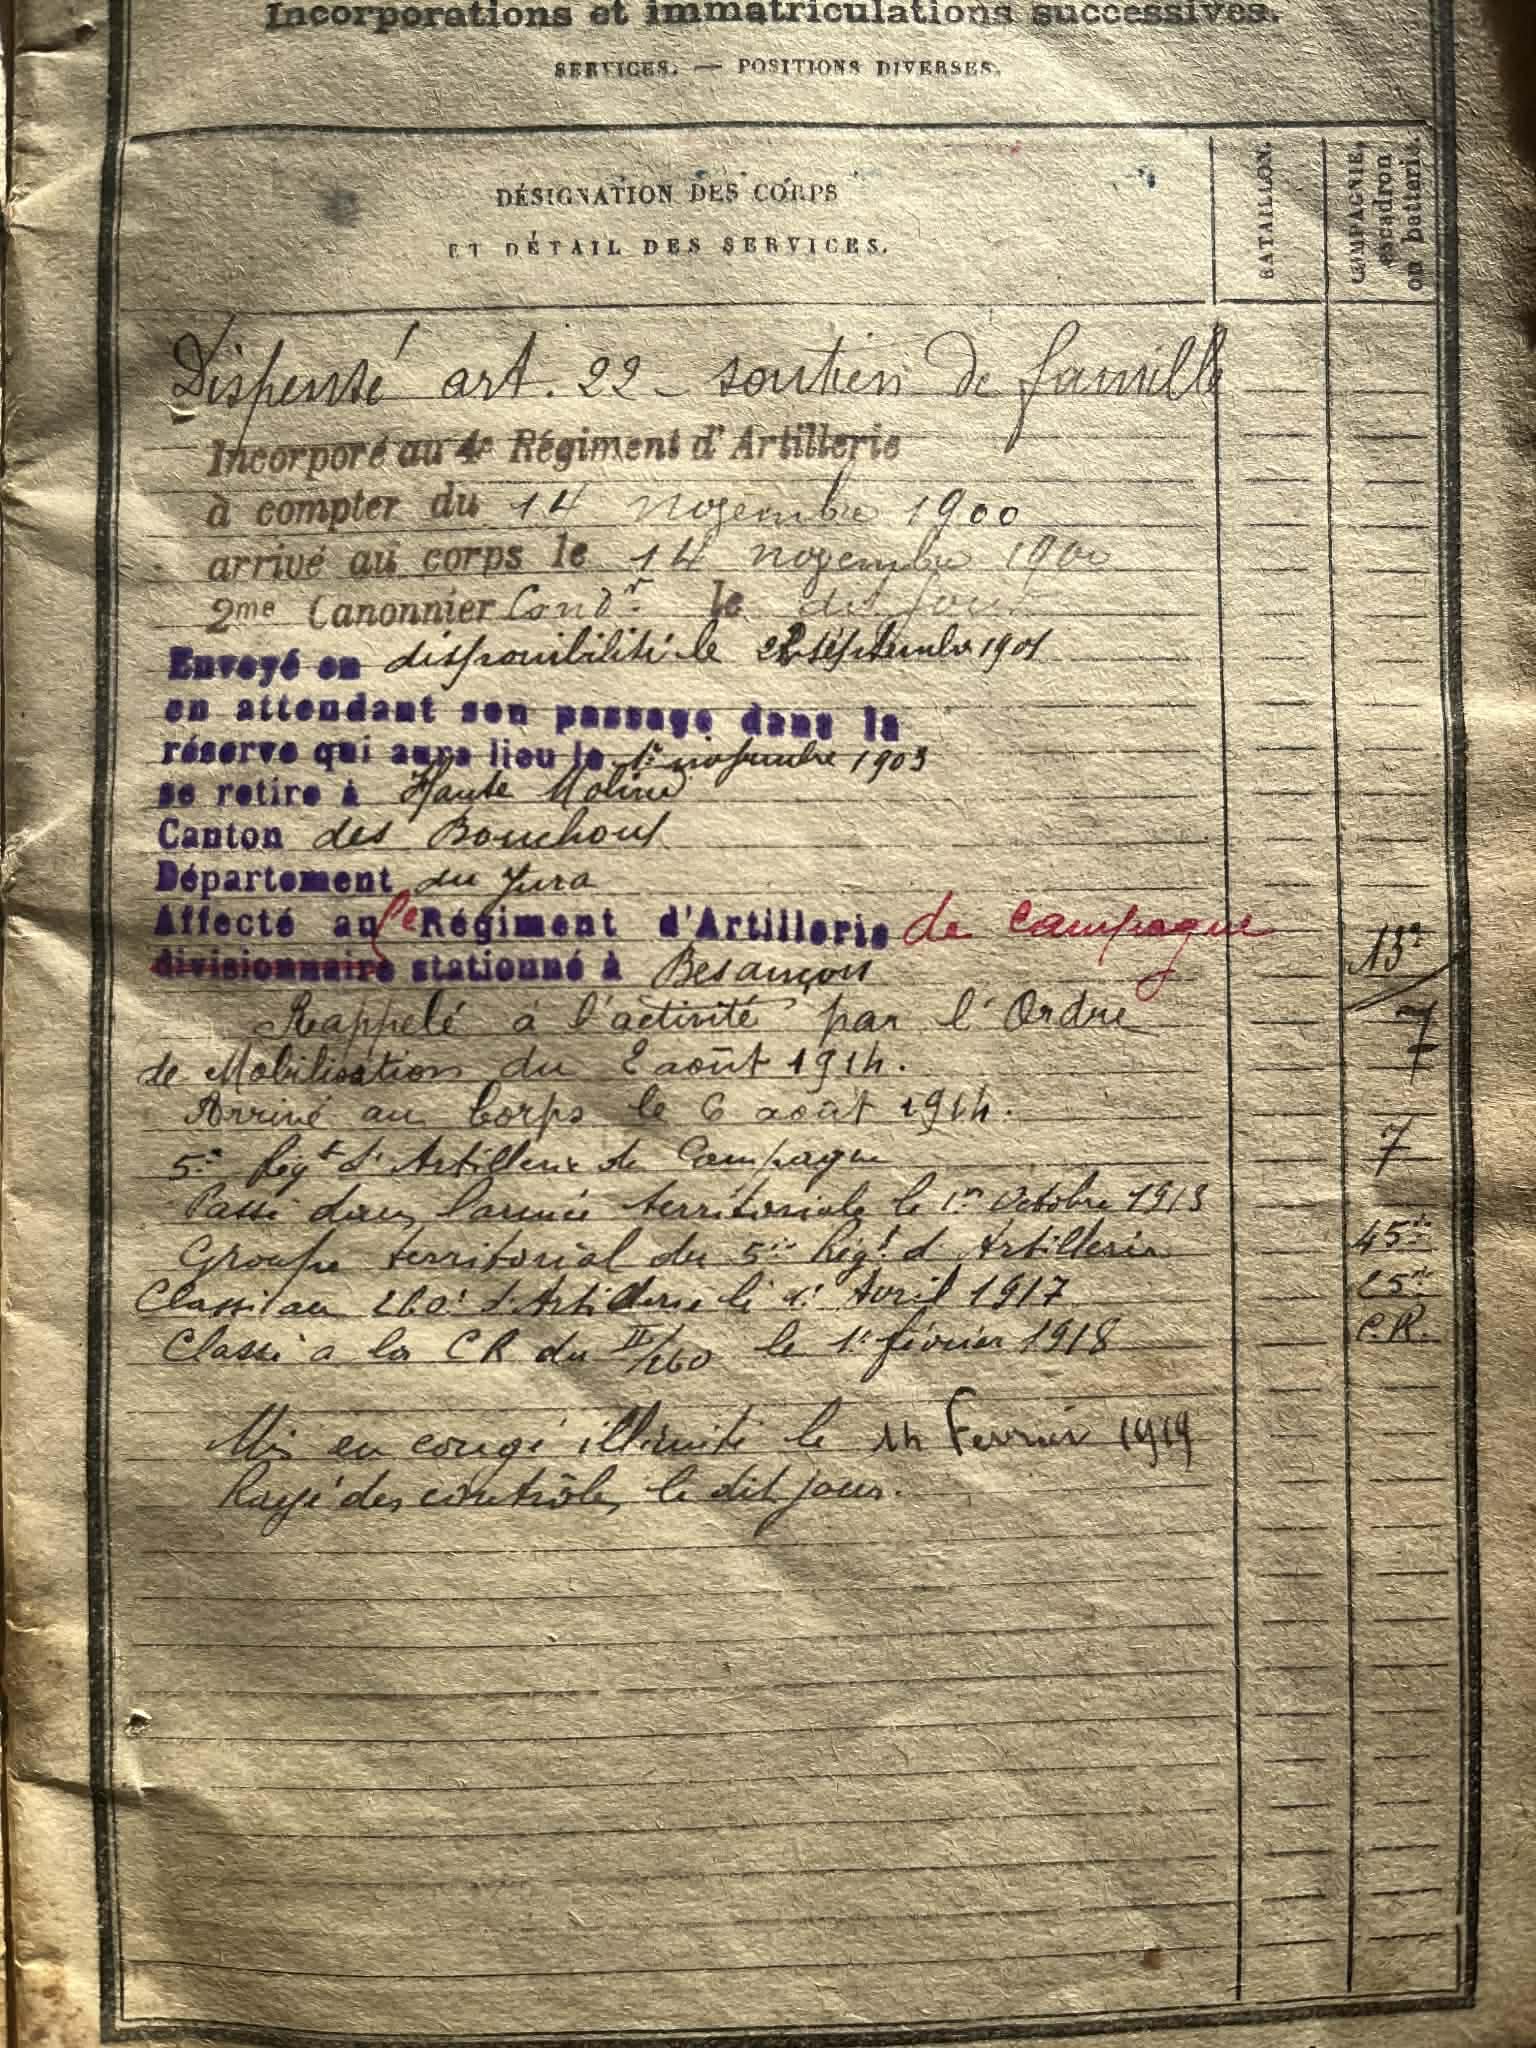 Incorporations et immatriculations successives.
SERVICES. — POSITIONS DIVERSES.
DÉSIGNATION DES CORPS
ET DÉTAIL DES SERVICES.
BATAILLON.
COMPAGNIE,
escadron
ou batterie.
Dispensé art. 22 - soutien de famille
Incorporé au 4e Régiment d'Artillerie
à compter du 14 novembre 1900
arrivé au corps le 14 novembre 1900
2me Canonnier Condr le dit jour
Envoyé en disponibilité le 22 septembre 1901
en attendant son passage dans la
réserve qui aura lieu le 1er novembre 1903
se retire à Haute Molune
Canton des Bouchoux
Département du Jura
Affecté au Régiment d'Artillerie de campagne
divisionnaire stationné à Besançon
13e
Rappelé à l'activité par l'Ordre
7
de Mobilisation du 2 août 1914.
7
Arrivé au Corps le 6 août 1914.
5e Régt d'Artillerie de Campagne
7
Passé dans l'armée territoriale le 1er Octobre 1913
Groupe territorial du 5e Régt d'Artillerie
45e
Classé au 260e d'Artillerie le 1er Avril 1917
25e
Classé à la CR du II/260 le 1er février 1918
C.R.
Mis en congé illimité le 14 Février 1919
Rayé des contrôles le dit jour.